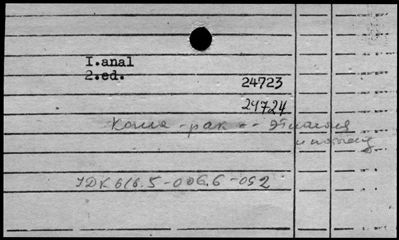 I.anal
2.ed.
24723
24724
Кожа - рак -- Этиология
и патогенез
УДК 616.5-006.6-092